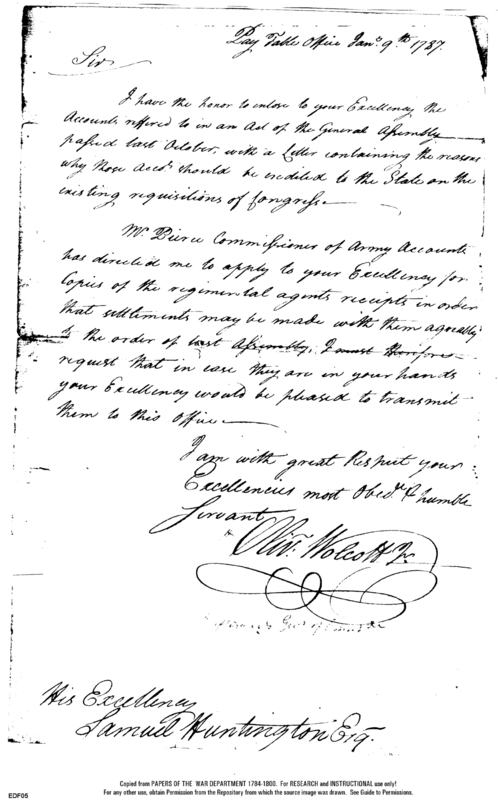 Pay Table Office Jany. 9th 1787.
Sir
I have the honor to inclose to your Excellency the
Accounts reffered to in an Act of the General Assembly
passed last October, with a Letter containing the reasons
why those Accts. should be credited to the State on the
existing requisitions of Congress
Mr. Pierce Commissioner of Army Accounts
has directed me to apply to your Excellency for
Copies of the regimental agents receipts in order
that settlements may be made with them agreably
to the order of last Assembly, I must therefore
request that in case they are in your hands
your Excellency would be pleased to transmit
them to this Office
I am with great Respect your
Excellencies most Obedt. & humble
Servant
Olivr. Wolcott Jr.
His Excellency
Samuel Huntington Esq.
Copied from PAPERS OF THE WAR DEPARTMENT 1784-1800. For RESEARCH and INSTRUCTIONAL use only!
For any other use, obtain Permission from the Repository from which the source image was drawn. See Guide to Permissions.
EDF05